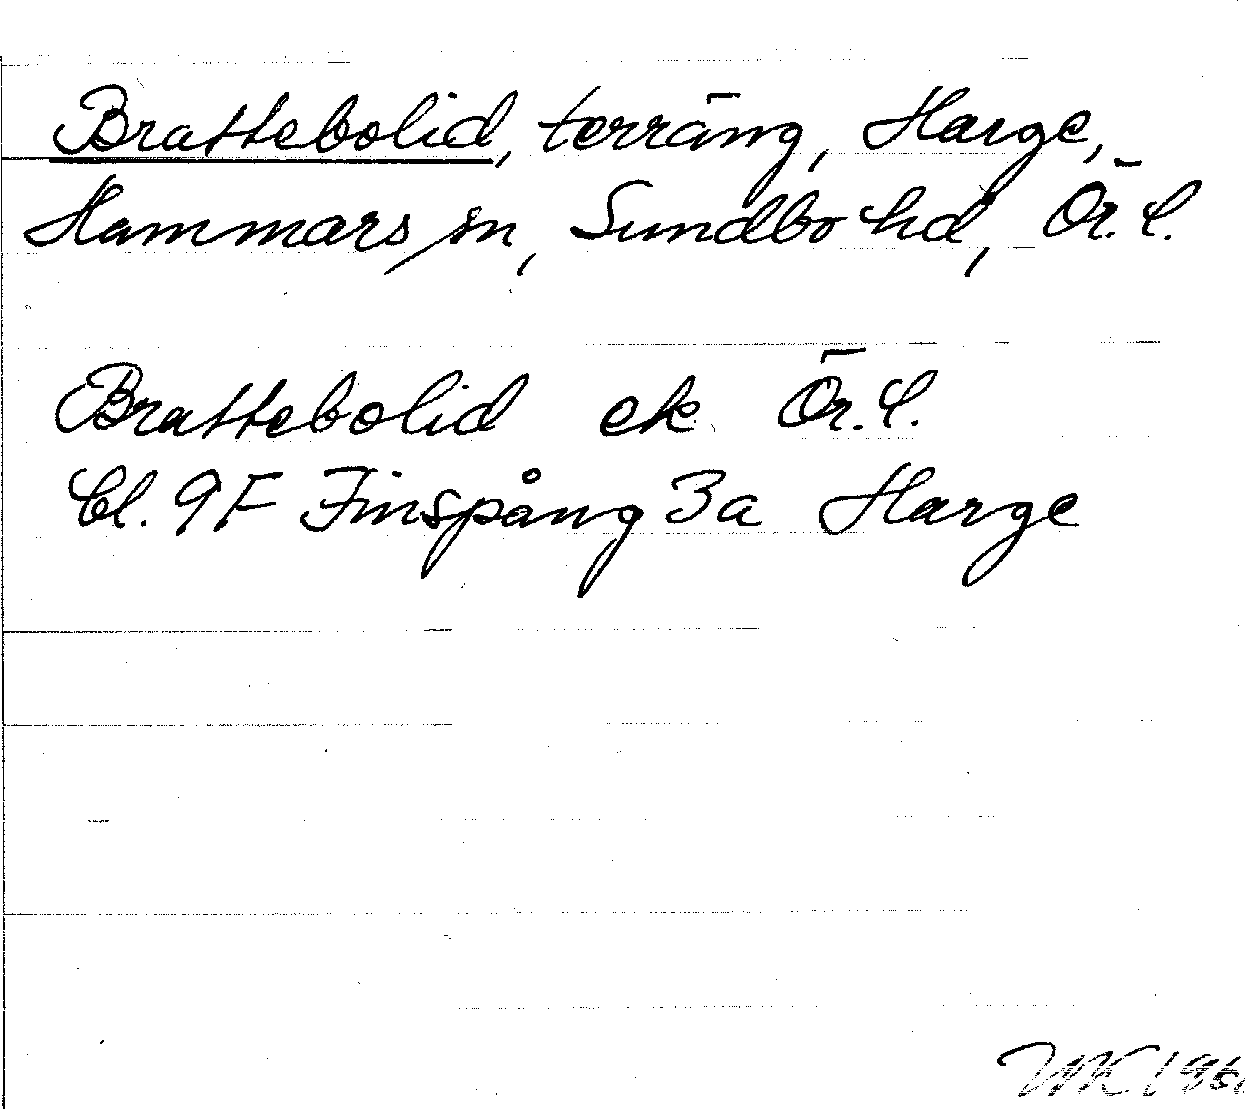 Brattebolid, terräng, Harge,
Hammars sn, Sundbo hd, Ör. l.
Brattebolid ek Ör. l.
bl. 9F Finspång 3a Harge